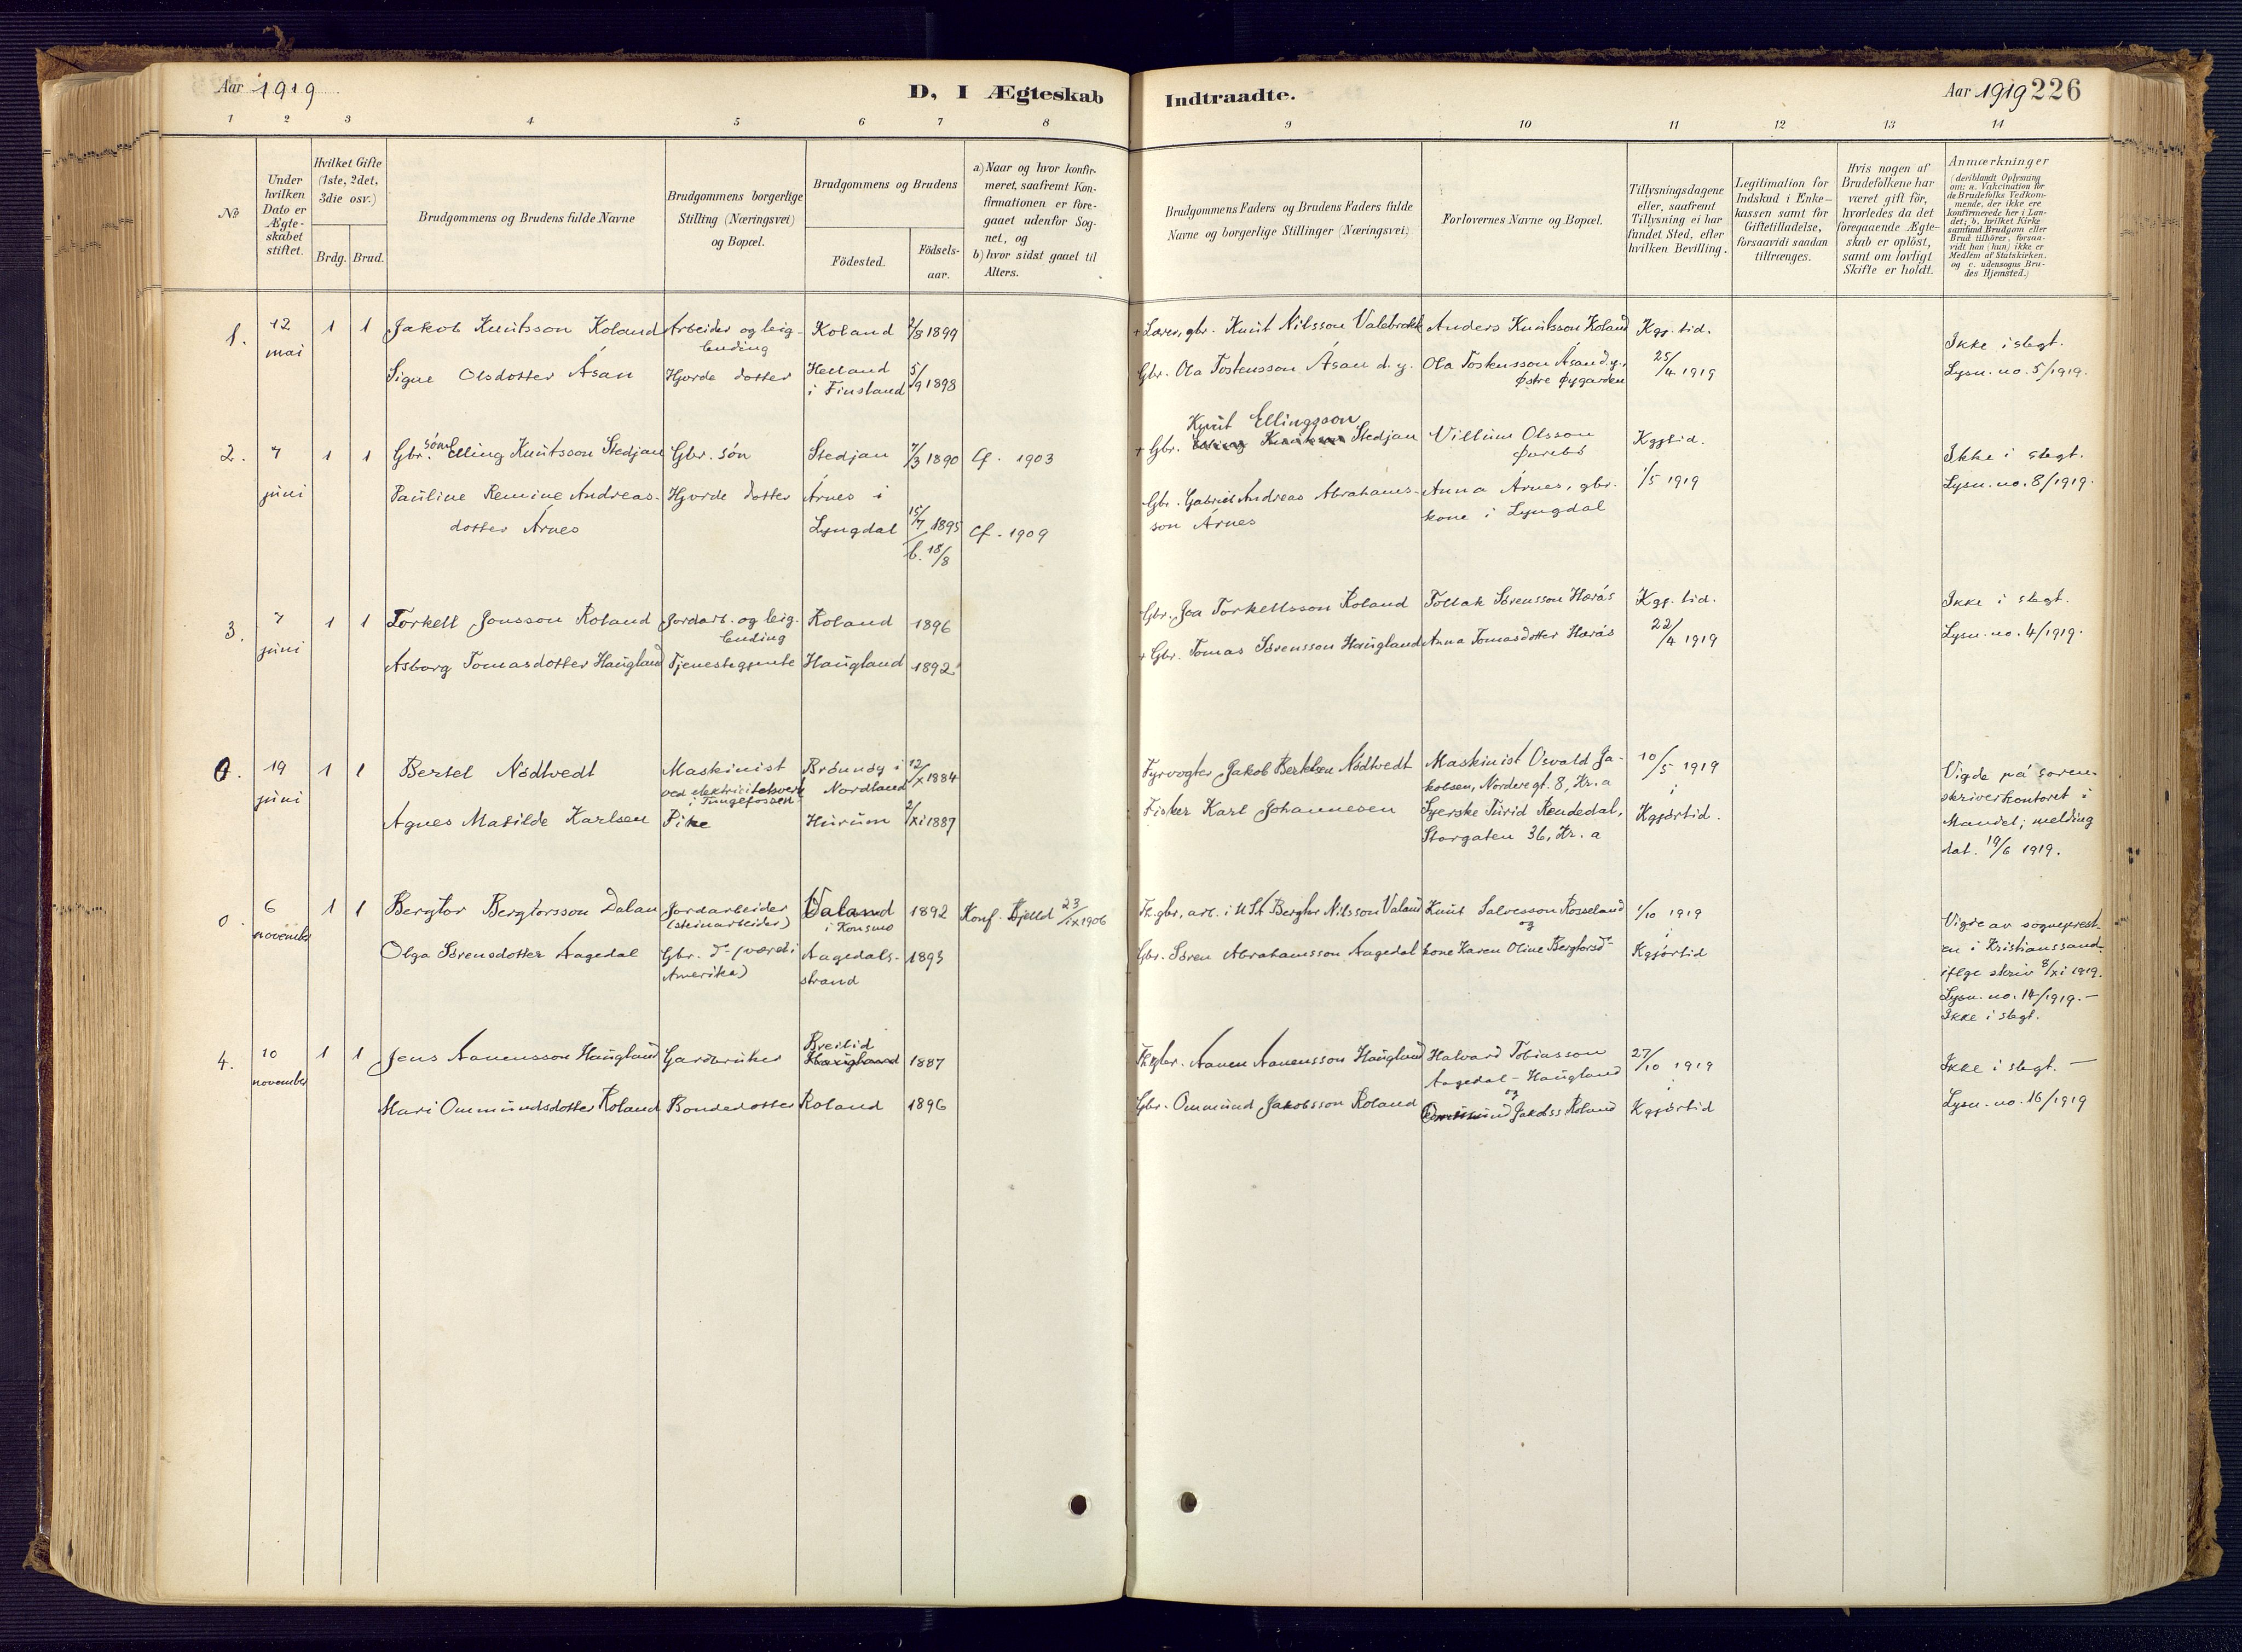 Aar 1919
D, I Ægteskab
Indtraadte.
Aar 1919 226
1 2 3 4 5 6 7 8
9 10 11 12 13 14
No
Under hvilken Dato er Ægteskabet stiftet.
Hvilket Gifte (1ste, 2det, 3die osv.)
Brdg. Brud.
Brudgommens og Brudens fulde Navne
Brudgommens borgerlige Stilling (Næringsvei) og Bopæl.
Brudgommens og Brudens
Födested.
Födsels-aar.
a) Naar og hvor konfirmeret, saafremt Konfirmationen er foregaaet udenfor Sognet, og
b) hvor sidst gaaet til Alters.
Brudgommens Faders og Brudens Faders fulde Navne og borgerlige Stillinger (Næringsvei)
Forlovernes Navne og Bopæl.
Tillysningsdagene eller, saafremt Tillysning ei har fundet Sted, efter hvilken Bevilling.
Legitimation for Indskud i Enkekassen samt for Giftetilladelse, forsaavidt saadan tiltrænges.
Hvis nogen af Brudefolkene har været gift för, hvorledes da det foregaaende Ægteskab er oplöst, samt om lovligt Skifte er holdt.
Anmærkninger
(deriblandt Oplysning om: a. Vakcination for de Brudefolks Vedkommende, der ikke ere konfirmerede her i Landet; b. hvilket Kirkesamfund Brudgom eller Brud tilhörer, forsaavidt han (hun) ikke er Medlem af Statskirken, og c. udensogns Brudes Hjemsted.)
1. 12 mai 1 1 Jakob Knutsson Koland Arbeider og leiglending Koland 2/8 1899
+ Lærer, gbr. Knut Nilsson Valebrokk Anders Knutsson Koland Kgj. tid.
Signe Olsdotter Åsan Hjorde dotter Helland i Finsland 5/9 1898
Gbr. Ola Tostensson Åsan d. y. Ola Tostensson Åsan d. y., Østre Øygarden 25/4 1919
Ikke i slegt.
Lysn. no. 5/1919.
2. 7 juni 1 1 Gbr. søn Elling Knutsson Stedjan Gbr. søn Stedjan 7/3 1890 Cf. 1903
Knut Ellingsson
+ Gbr. Stedjan Villum Olsson Øvrebø Kgjtid.
Pauline Remine Andreasdotter Årnes Hjorde dotter Årnes i Lyngdal 15/7 1895 b. 18/8 Cf. 1909
Gbr. Gabriel Andreas Abrahamsson Årnes Anna Årnes, gbr. kone i Lyngdal 1/5 1919
Ikke i slegt.
Lysn. no. 8/1919.
3. 7 juni 1 1 Torkell Jonsson Roland Jordarb. og leiglending Roland 1896
Gbr. Jon Torkellsson Roland Tollak Sørensson Harås Kgj. tid.
Asborg Tomasdotter Haugland Tjenestegjente Haugland 1892
+ Gbr. Tomas Sørensson Haugland Anna Tomasdotter Harås 22/4 1919
Ikke i slegt.
Lysn. no. 4/1919.
0. 19 juni 1 1 Bertel Nödtvedt Maskinist ved elektricitetsverk i Tungefossen Brönnöy i Nordland 12/x 1884
Fyrvogter Jakob Bertelsen Nødtvedt Maskinist Osvald Jakobsen, Nordre gt. 8, Kr.a 10/5 1919
Agnes Matilde Karlsen Pike Hurum 2/xi 1887
Fisker Karl Johannesen Syerske Turid Rendedal, Storgaten 36, Kr.a i Kgjørtid.
Vigde på sorenskriverkontoret i Mandal; melding dat. 19/6 1919.
0. 6 november 1 1 Bergtor Bergtorsson Dalan Jordarbeider (steinarbeider) Valand i Konsmo 1892 Konf. 23/ix 1906
Fh. gbr., arb. i U St Bergtor Nilsson Valand Knut Salvesson Rosseland og 1/10 1919
Olga Sørensdotter Aagedal Gbr. d. (været i Amerika) Aagedalsstrand 1893
Gbr. Søren Abrahamsson Aagedal kone Karen Oline Bergtorsd. i Kgjörtid
Vigde av sognepresten i Kristianssand iflge skriv 8/xi 1919.
Lysn. no. 14/1919. —
Ikke i slegt.
4. 10 november 1 1 Jens Aanensson Haugland Gardbruker Breilid Haugland 1887
Fh. gbr. Aanen Aanensson Haugland Halvard Tobiasson Aagedal - Haugland og 27/10 1919
Mari Ommundsdotter Roland Bondedotter Roland 1896
Gbr. Ommund Jakobsson Roland Ommund Jakobss Roland i Kgjörtid
Ikke i slegt. —
Lysn. no. 16/1919